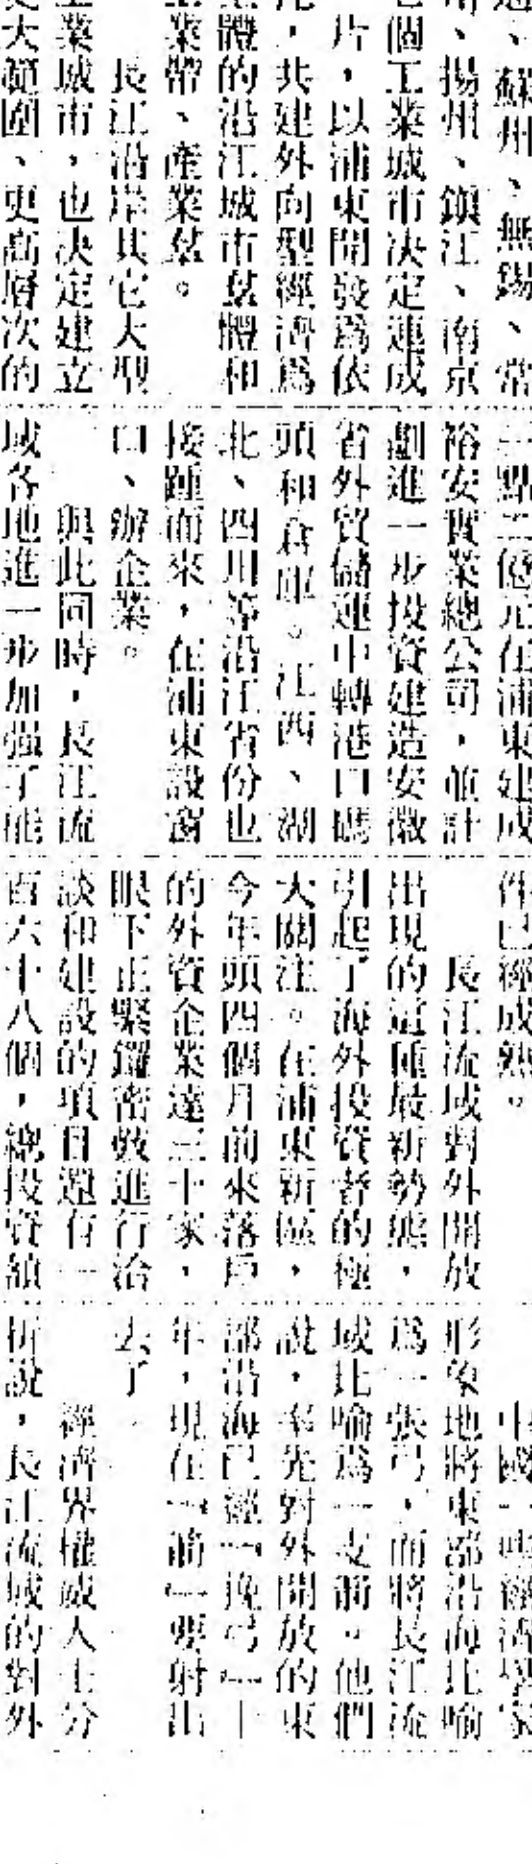 通、蘇州、無錫、常
州、揚州、鎮江、南京
個工業城市決定連成
片，以浦東開發爲依
，共建外向型經濟爲
體的沿江城市羣體和
業帶、產業羣。
長江沿岸其它大型
業城市，也決定建立
更大範圍、更高層次的
一點二億元在浦東建成
裕安實業總公司，並計
劃進一步投資建造安徽
省外貿儲運中轉港口碼
頭和倉庫。江西、湖
北、四川等沿江省份也
接踵而來，在浦東設窗
口、辦企業。
與此同時，長江流
域各地進一步加强了能
件已經成熟。
長江流域對外開放
出現的這種最新勢態，
引起了海外投資者的極
大關注。在浦東新區，
今年頭四個月前來落戶
的外資企業達三十家，
眼下正緊鑼密鼓進行洽
談和建設的項目還有一
百六十八個，總投資額
中國一些經濟學家
形象地將東部沿海比喻
爲一張弓，而將長江流
域比喻爲一支箭。他們
說，率先對外開放的東
部沿海已經「挽弓」十
年，現在「箭」要射出
去了。
經濟界權威人士分
析說，長江流域的對外